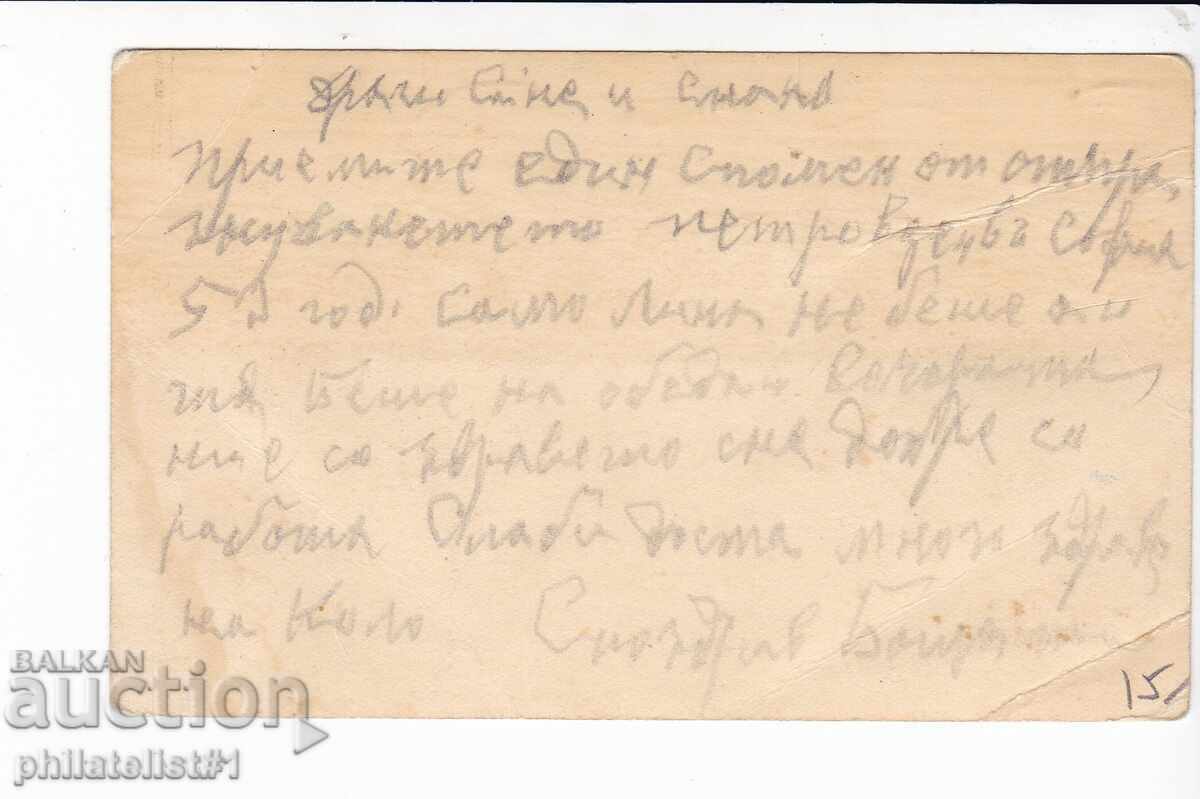 драги Сине и снаха
Приемите един Спомен от отпра,
знуванетето петровден въ София
5 год. само Лиля не беше а и
тя беше на обеда
ние со здравето сме добре со
работа слаби доста много здраве
на Коло С поздрав
15
BALKAN
auction
philatelist#1